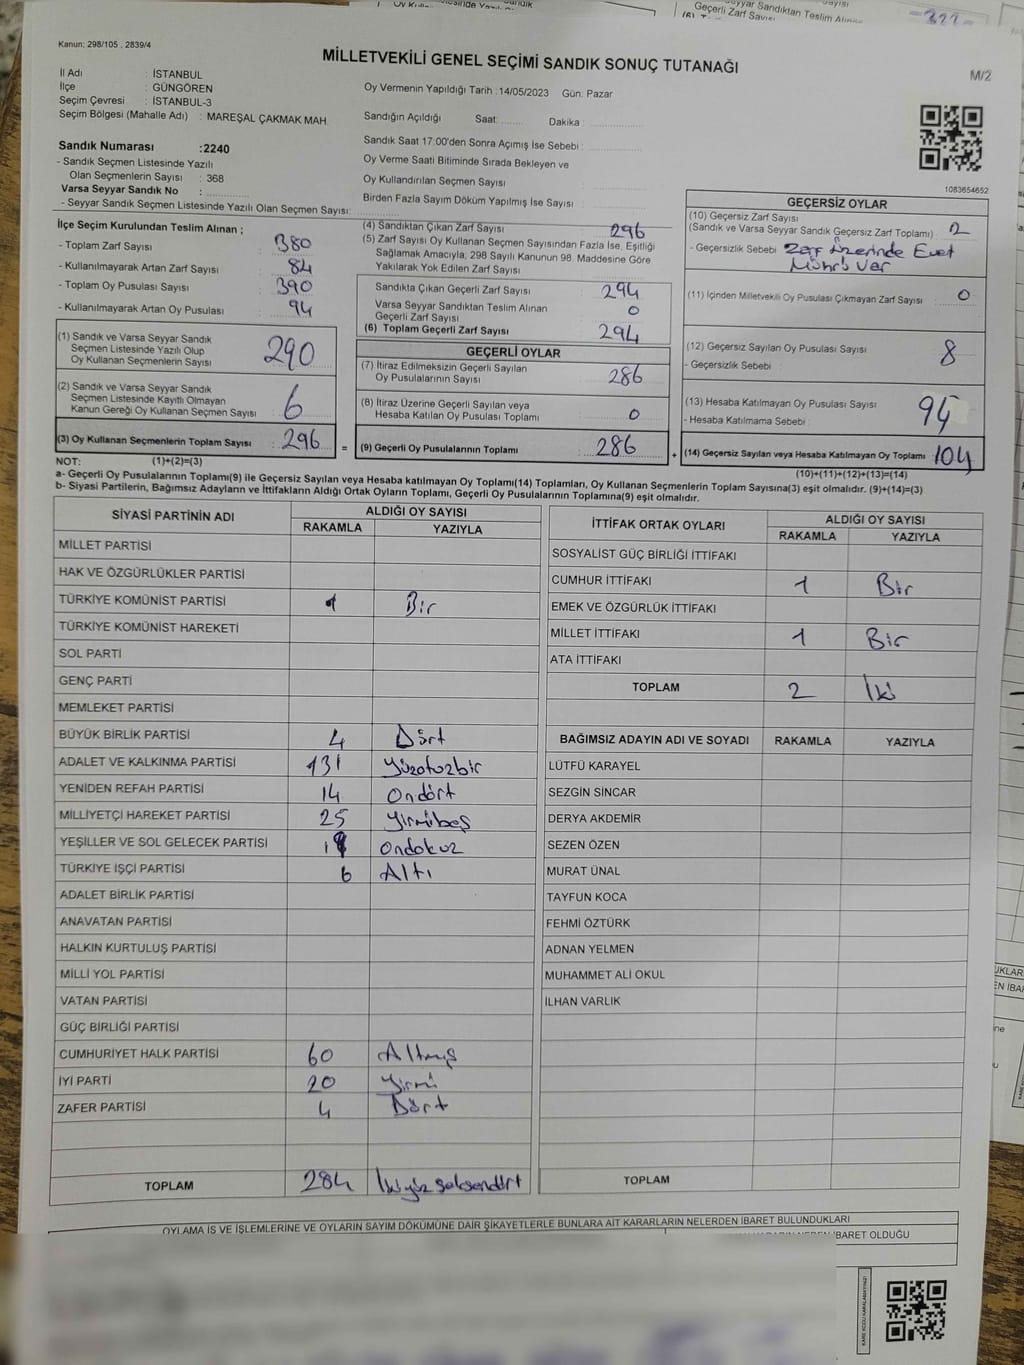 Geçerli Zarf Sayısı
Kanun: 298/105 , 2839/4
MİLLETVEKİLİ GENEL SEÇİMİ SANDIK SONUÇ TUTANAĞI
M/2
İl Adı : İSTANBUL
İlçe : GÜNGÖREN
Seçim Çevresi : İSTANBUL-3
Seçim Bölgesi (Mahalle Adı) : MAREŞAL ÇAKMAK MAH.
Oy Vermenin Yapıldığı Tarih :14/05/2023 Gün: Pazar
Sandığın Açıldığı Saat: Dakika :
Sandık Saat 17:00'den Sonra Açımış İse Sebebi :
Oy Verme Saati Bitiminde Sırada Bekleyen ve
Oy Kullandırılan Seçmen Sayısı :
Birden Fazla Sayım Döküm Yapılmış İse Sayısı :
Sandık Numarası :2240
- Sandık Seçmen Listesinde Yazılı
Olan Seçmenlerin Sayısı : 368
Varsa Seyyar Sandık No :
- Seyyar Sandık Seçmen Listesinde Yazılı Olan Seçmen Sayısı:
1083654652
İlçe Seçim Kurulundan Teslim Alınan ;
- Toplam Zarf Sayısı : 380
- Kullanılmayarak Artan Zarf Sayısı : 84
- Toplam Oy Pusulası Sayısı : 390
- Kullanılmayarak Artan Oy Pusulası : 94
(1) Sandık ve Varsa Seyyar Sandık
Seçmen Listesinde Yazılı Olup
Oy Kullanan Seçmenlerin Sayısı : 290
(2) Sandık ve Varsa Seyyar Sandık
Seçmen Listesinde Kayıtlı Olmayan
Kanun Gereği Oy Kullanan Seçmen Sayısı : 6
(3) Oy Kullanan Seçmenlerin Toplam Sayısı : 296 =
(4) Sandıktan Çıkan Zarf Sayısı : 296
(5) Zarf Sayısı Oy Kullanan Seçmen Sayısından Fazla İse, Eşitliği
Sağlamak Amacıyla, 298 Sayılı Kanunun 98. Maddesine Göre
Yakılarak Yok Edilen Zarf Sayısı :
Sandıkta Çıkan Geçerli Zarf Sayısı : 294
Varsa Seyyar Sandıktan Teslim Alınan
Geçerli Zarf Sayısı : 0
(6) Toplam Geçerli Zarf Sayısı : 294
GEÇERLİ OYLAR
(7) İtiraz Edilmeksizin Geçerli Sayılan
Oy Pusulalarının Sayısı : 286
(8) İtiraz Üzerine Geçerli Sayılan veya
Hesaba Katılan Oy Pusulası Toplamı : 0
(9) Geçerli Oy Pusulalarının Toplamı : 286 +
GEÇERSİZ OYLAR
(10) Geçersiz Zarf Sayısı
(Sandık ve Varsa Seyyar Sandık Geçersiz Zarf Toplamı) : 2
- Geçersizlik Sebebi : Zarf üzerinde Evet
Mührü Var
(11) İçinden Milletvekili Oy Pusulası Çıkmayan Zarf Sayısı : 0
(12) Geçersiz Sayılan Oy Pusulası Sayısı : 8
- Geçersizlik Sebebi :
(13) Hesaba Katılmayan Oy Pusulası Sayısı : 94
- Hesaba Katılmama Sebebi :
(14) Geçersiz Sayılan veya Hesaba Katılmayan Oy Toplamı : 104
NOT: (1)+(2)=(3)
(10)+(11)+(12)+(13)=(14)
a- Geçerli Oy Pusulalarının Toplamı(9) ile Geçersiz Sayılan veya Hesaba katılmayan Oy Toplamı(14) Toplamları, Oy Kullanan Seçmenlerin Toplam Sayısına(3) eşit olmalıdır. (9)+(14)=(3)
b- Siyasi Partilerin, Bağımsız Adayların ve İttifakların Aldığı Ortak Oyların Toplamı, Geçerli Oy Pusulalarının Toplamına(9) eşit olmalıdır.
SİYASİ PARTİNİN ADI ALDIĞI OY SAYISI
RAKAMLA YAZIYLA
MİLLET PARTİSİ
HAK VE ÖZGÜRLÜKLER PARTİSİ
TÜRKİYE KOMÜNİST PARTİSİ 1 Bir
TÜRKİYE KOMÜNİST HAREKETİ
SOL PARTİ
GENÇ PARTİ
MEMLEKET PARTİSİ
BÜYÜK BİRLİK PARTİSİ 4 Dört
ADALET VE KALKINMA PARTİSİ 131 Yüzotuzbir
YENİDEN REFAH PARTİSİ 14 Ondört
MİLLİYETÇİ HAREKET PARTİSİ 25 Yirmibeş
YEŞİLLER VE SOL GELECEK PARTİSİ 19 Ondokuz
TÜRKİYE İŞÇİ PARTİSİ 6 Altı
ADALET BİRLİK PARTİSİ
ANAVATAN PARTİSİ
HALKIN KURTULUŞ PARTİSİ
MİLLİ YOL PARTİSİ
VATAN PARTİSİ
GÜÇ BİRLİĞİ PARTİSİ
CUMHURİYET HALK PARTİSİ 60 Altmış
İYİ PARTİ 20 Yirmi
ZAFER PARTİSİ 4 Dört
TOPLAM 284 İkiyüz seksendört
İTTİFAK ORTAK OYLARI ALDIĞI OY SAYISI
RAKAMLA YAZIYLA
SOSYALİST GÜÇ BİRLİĞİ İTTİFAKI
CUMHUR İTTİFAKI 1 Bir
EMEK VE ÖZGÜRLÜK İTTİFAKI
MİLLET İTTİFAKI 1 Bir
ATA İTTİFAKI
TOPLAM 2 İki
BAĞIMSIZ ADAYIN ADI VE SOYADI RAKAMLA YAZIYLA
LÜTFÜ KARAYEL
SEZGİN SİNCAR
DERYA AKDEMİR
SEZEN ÖZEN
MURAT ÜNAL
TAYFUN KOCA
FEHMİ ÖZTÜRK
ADNAN YELMEN
MUHAMMET ALİ OKUL
İLHAN VARLIK
TOPLAM
OYLAMA İŞ VE İŞLEMLERİNE VE OYLARIN SAYIM DÖKÜMÜNE DAİR ŞİKAYETLERLE BUNLARA AİT KARARLARIN NELERDEN İBARET BULUNDUKLARI
İBARET OLDUĞU
KARE KODU KARALAMAYINIZ!